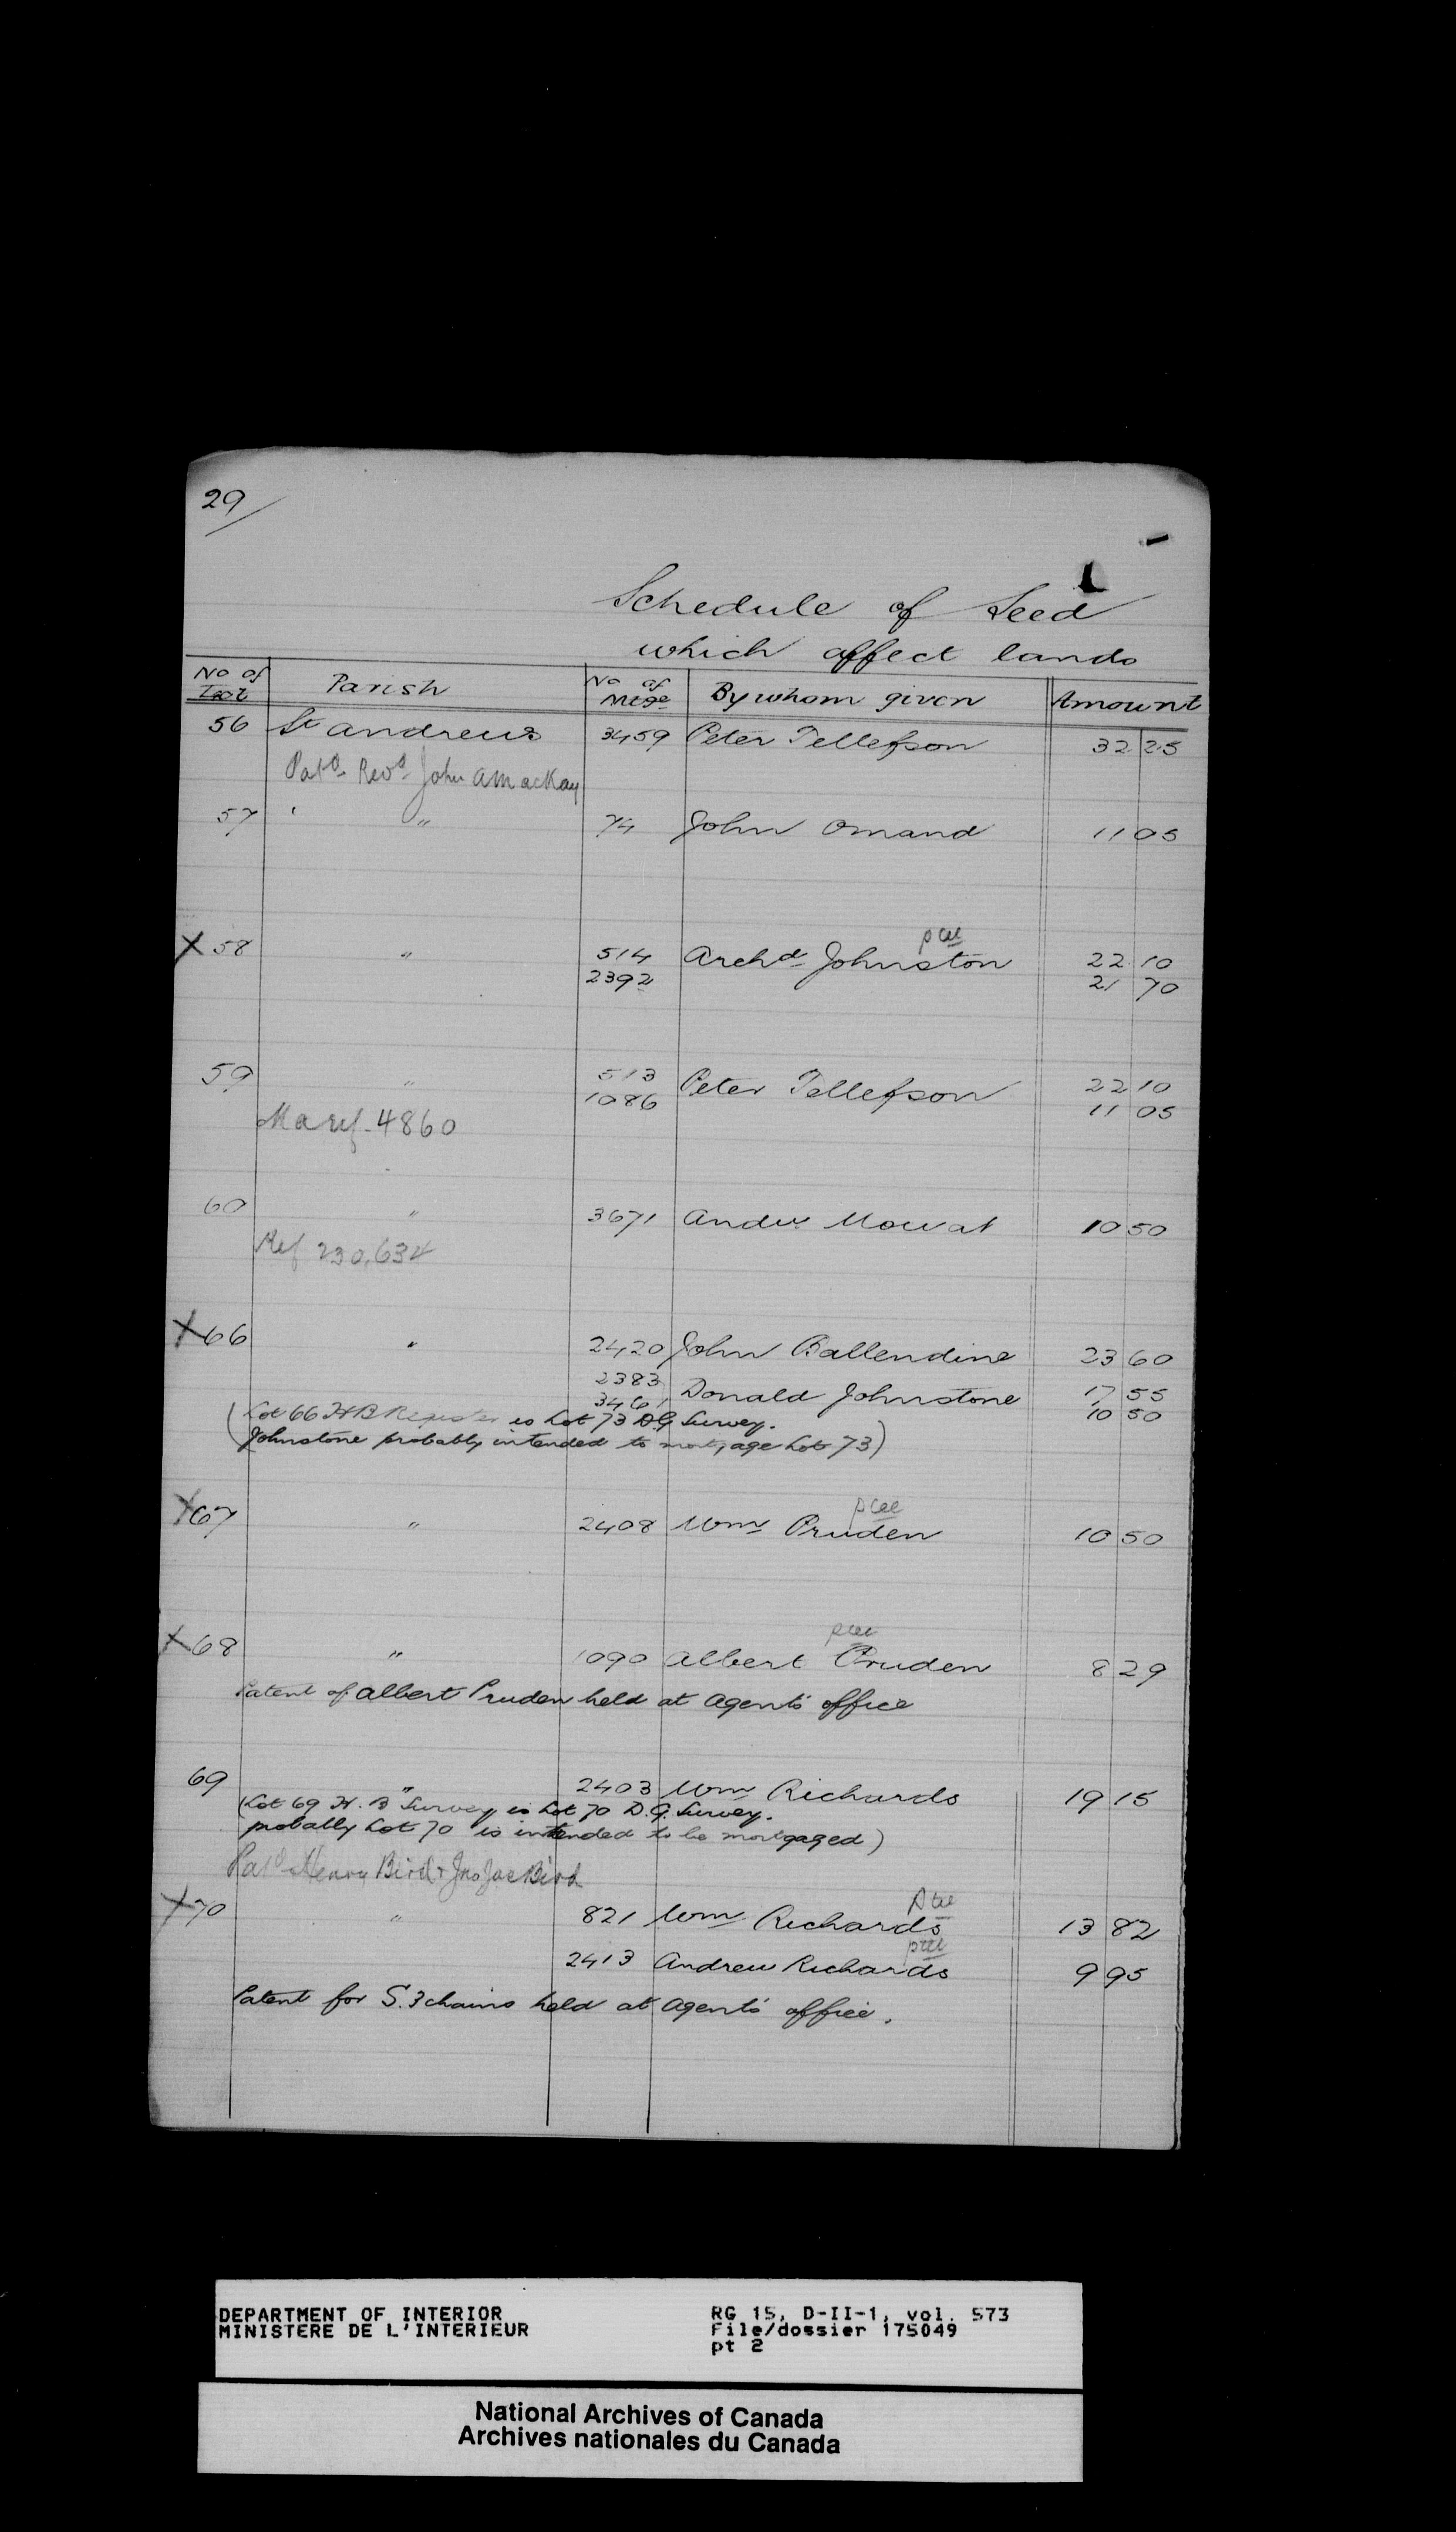 29/
Schedule of Seed
which affect lands
No of Lot Parish No of Mtge By whom given Amount
56 St Andrews 3459 Peter Tellefson 32 25
Patd Revd John A Mackay
57 " 74 John Omand 11 05
X 58 " 514 Archd Johnston 22 10
2392 21 70
59 " 513 Peter Tellefson 22 10
1086 11 05
Ma ref. 4860
60 " 3671 Andw Mowat 10 50
Ref 230,634
X 66 " 2420 John Ballendine 23 60
2383 Donald Johnstone 17 55
3461 10 50
(Lot 66 H B Register is Lot 73 D.G Survey.
Johnstone probably intended to mortgage Lot 73)
X 67 " 2408 Wm Pruden 10 50
X 68 " 1090 Albert Pruden 8 29
Patent of Albert Pruden held at Agents office
69 " 2403 Wm Richards 19 15
(Lot 69 H. B Survey is Lot 70 D.G. Survey.
probably Lot 70 is intended to be mortgaged)
Patd Henry Bird & Jno Jas Bird
X 70 " 821 Wm Richards 13 82
2413 Andrew Richards 9 95
Patent for S. 3 chains held at Agents office.
DEPARTMENT OF INTERIOR
MINISTERE DE L'INTERIEUR
RG 15, D-II-1, vol. 573
File/dossier 175049
pt 2
National Archives of Canada
Archives nationales du Canada